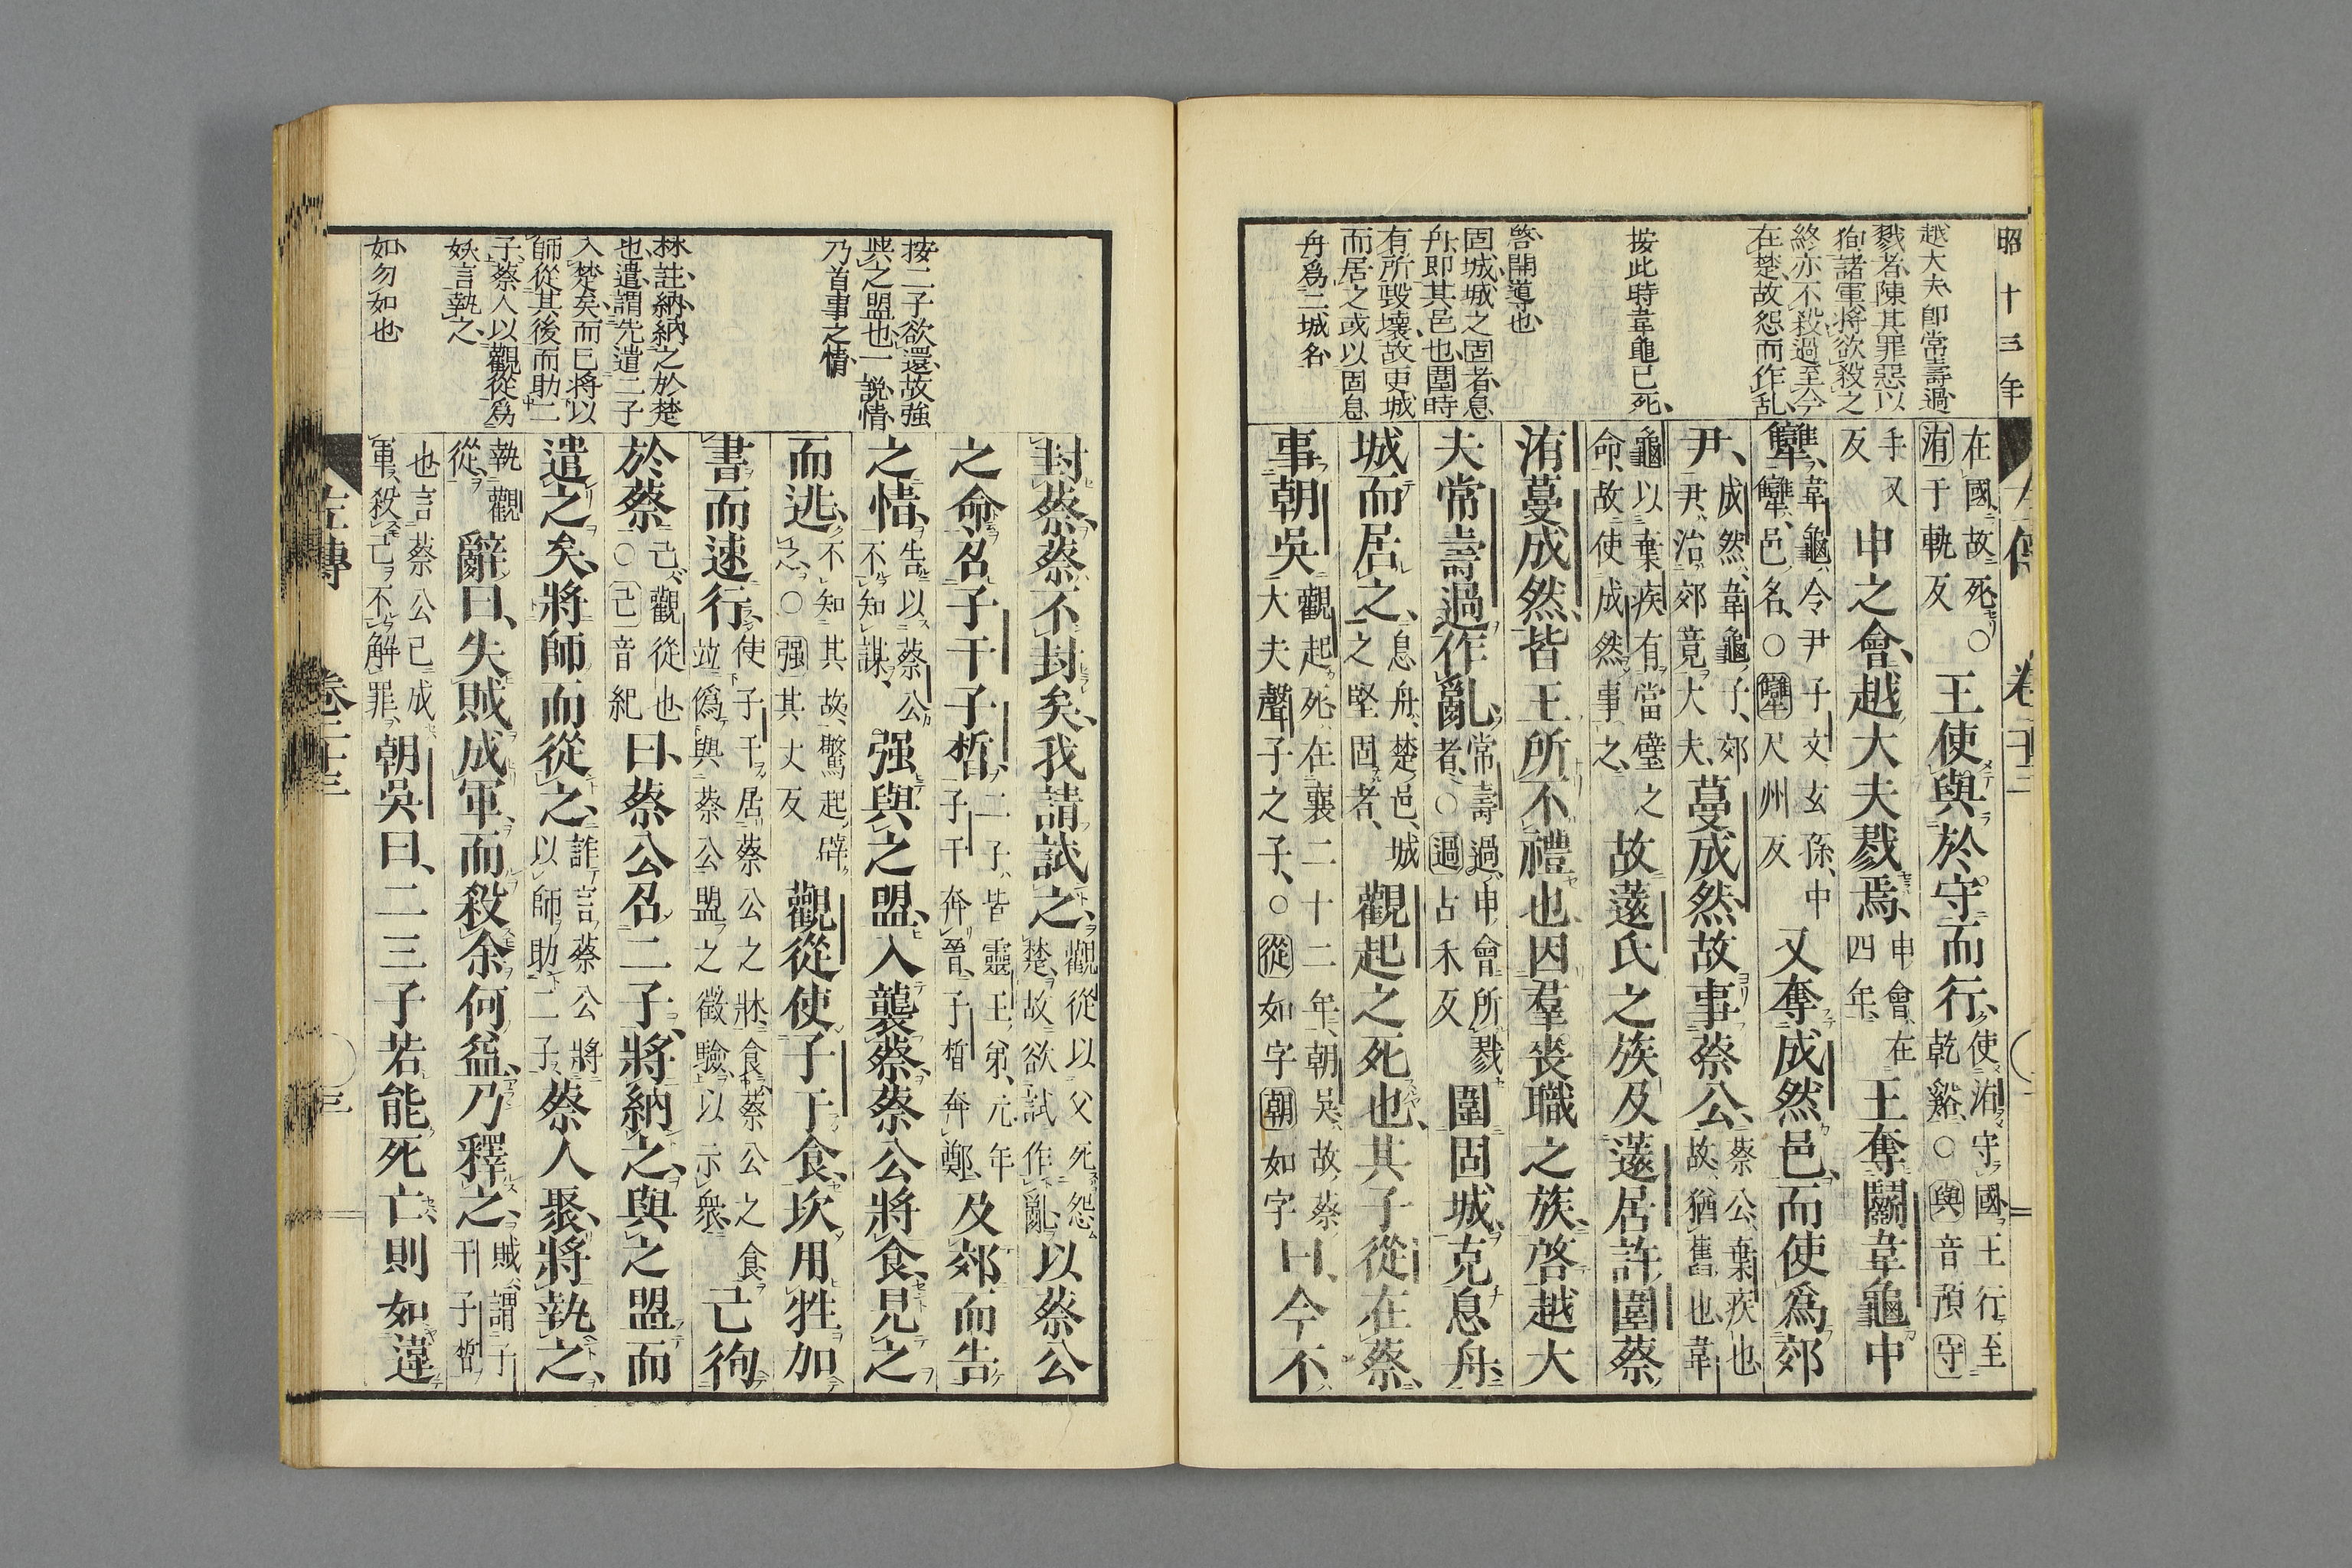 昭十三年
越大夫卽常壽過
戮者陳其罪惡以
狥諸軍將欲殺之
終亦不殺過至今
在楚故怨而作乱
按此時韋龜已死
啓開導也
固城城之固者息
舟卽其邑也圍時
有所毀壞故更城
而居之或以固息
舟爲二城名
左傳 卷二十三
在國故死○
洧于軌反
王使與於守而行
使洧守國王行至
乾谿○與音預守
手又
反
申之會越大夫戮焉
申會在
四年
王奪鬬韋龜中
犫
韋龜令尹子文玄孫中
犫邑名○犫尺州反
又奪成然邑而使爲郊
尹
成然韋龜子郊
尹治郊竟大夫
蔓成然故事蔡公
蔡公棄疾也
故猶舊也韋
龜以棄疾有當璧之
命故使成然事之
故薳氏之族及薳居許圍蔡
洧蔓成然皆王所不禮也因羣喪職之族啓越大
夫常壽過作亂
常壽過申會所戮
者○過古禾反
圍固城克息舟
城而居之
息舟楚邑城
之堅固者
觀起之死也其子從在蔡
事朝吳
觀起死在襄二十二年朝吳故蔡
大夫聲子之子○從如字朝如字
曰今不
按二子欲還故強
與之盟也一說情
乃首事之情
林註納納之於楚
也遣謂先遣二子
入楚矣而已將以
師從其後而助二
子蔡人以觀從爲
妖言執之
如勿如也
封蔡蔡不封矣我請試之
觀從以父死怨
楚故欲試作亂
以蔡公
之命召子干子皙
二子皆靈王弟元年
子干奔晉子皙奔鄭
及郊而告
之情
告以蔡公
不知謀
强與之盟入襲蔡蔡公將食見之
而逃
不知其故驚起辟
之○强其丈反
觀從使子干食坎用牲加
書而速行
使子干居蔡公之牀食蔡公之食
竝僞與蔡公盟之徵驗以示衆
己徇
於蔡
己觀從也
○己音紀
曰蔡公召二子將納之與之盟而
遣之矣將師而從之
詐言蔡公將
以師助二子
蔡人聚將執之
執觀
從
辭曰失賊成軍而殺余何益乃釋之
賊謂子
干子皙
也言蔡公已成
軍殺己不解罪
朝吳曰二三子若能死亡則如違
左傳 卷二十三 三